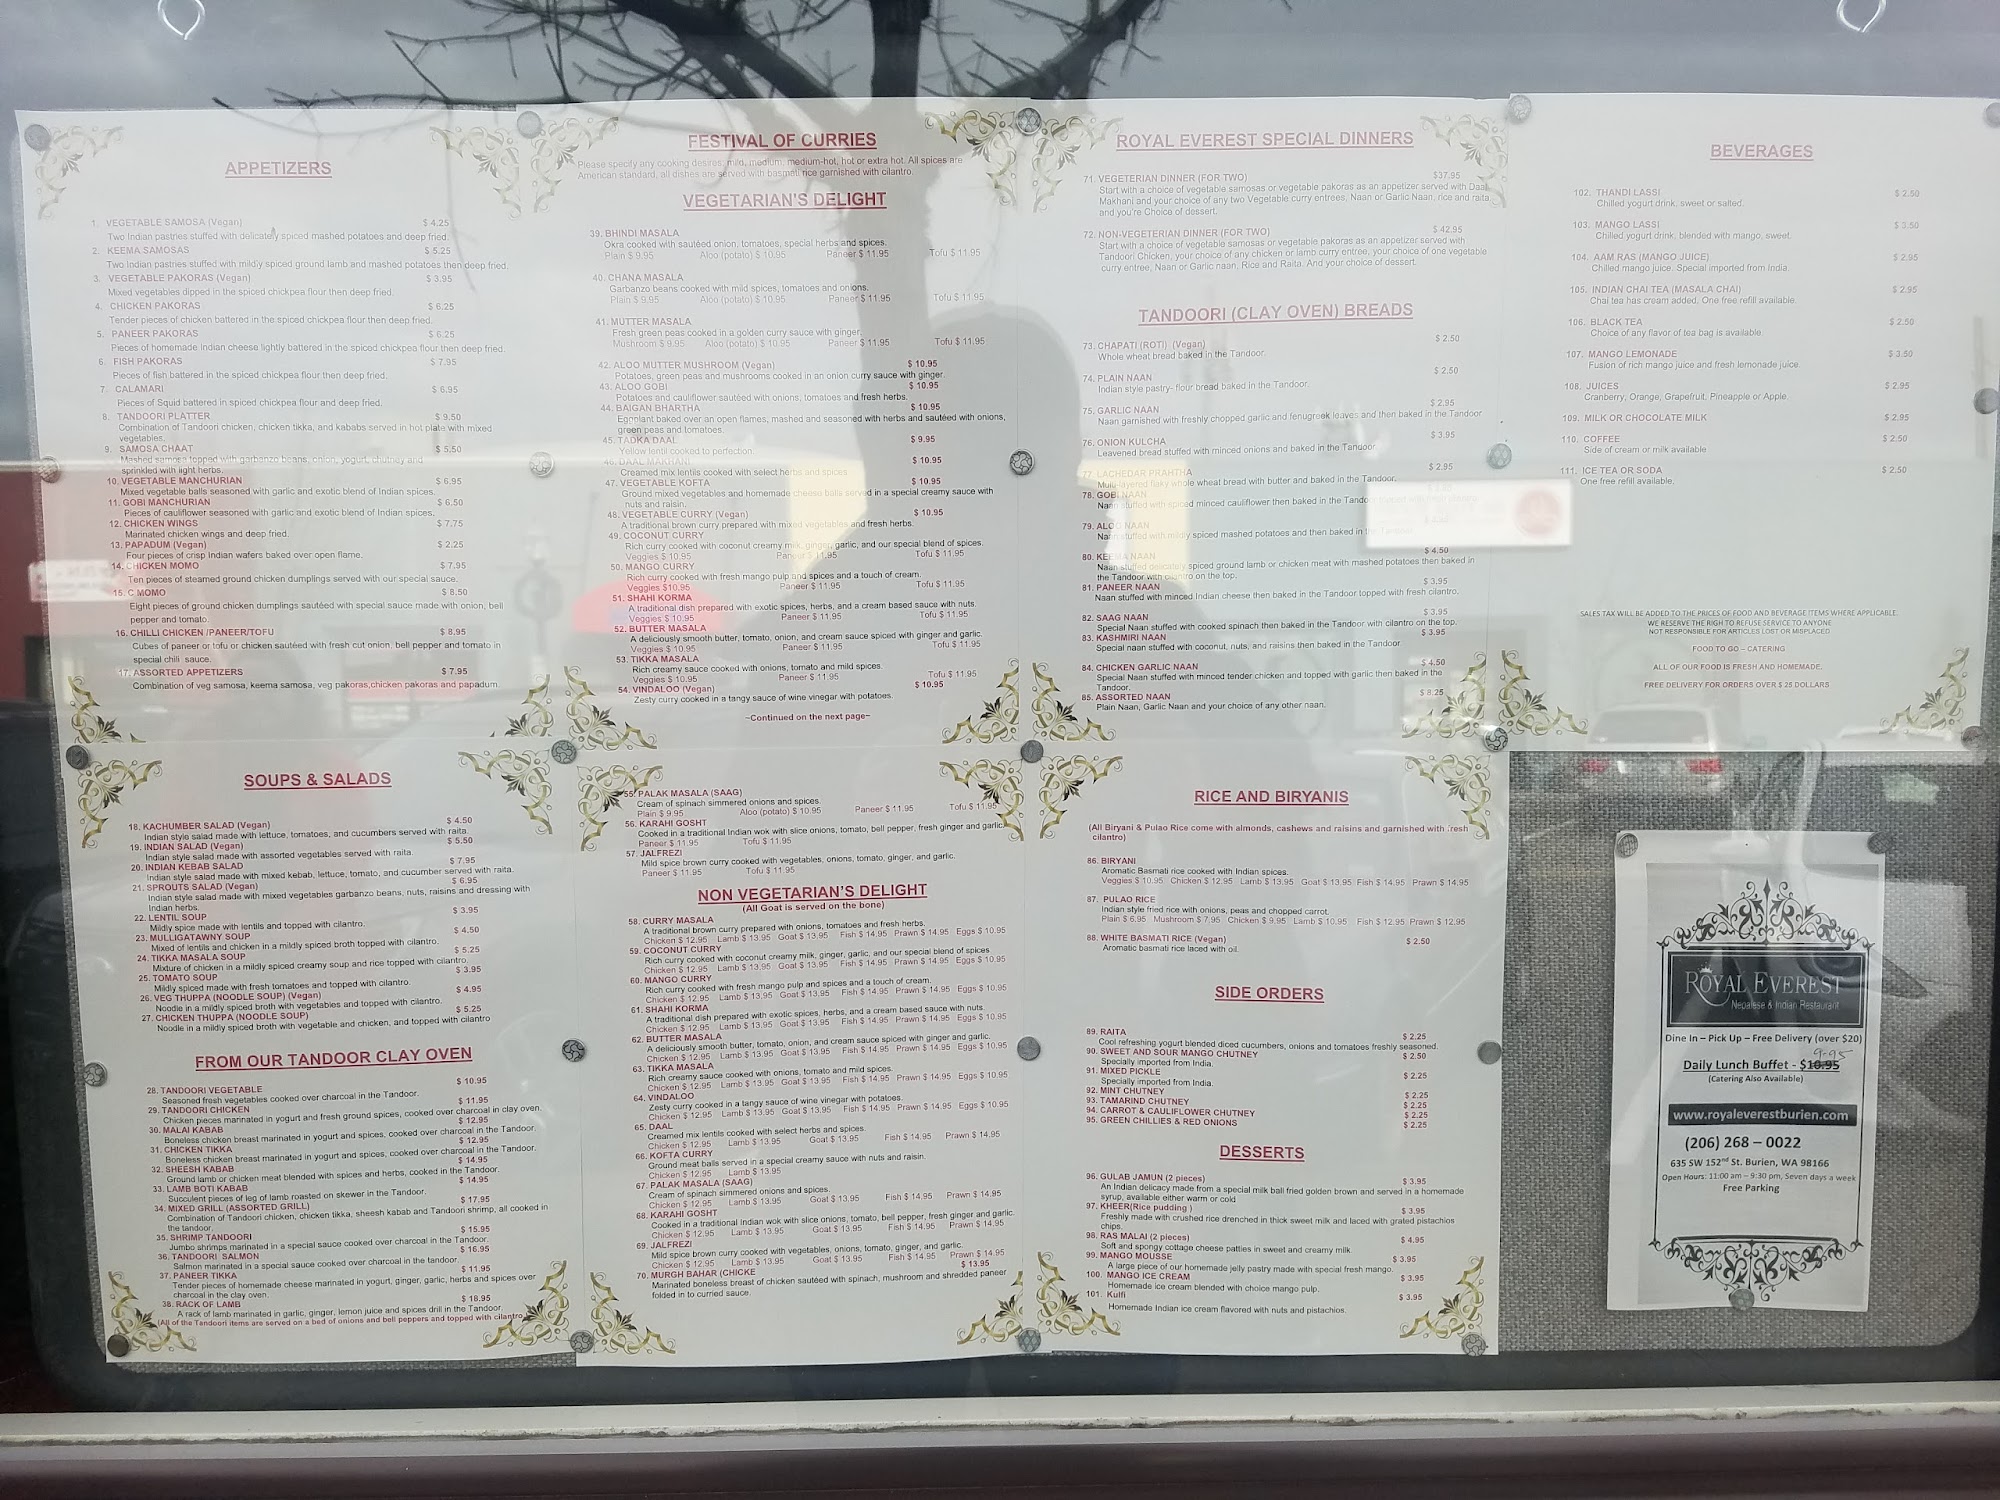 APPETIZERS
1. VEGETABLE SAMOSA (Vegan) $ 4.25
Two Indian pastries stuffed with delicately spiced mashed potatoes and deep fried.
2. KEEMA SAMOSAS $ 5.25
Two Indian pastries stuffed with mildly spiced ground lamb and mashed potatoes then deep fried.
3. VEGETABLE PAKORAS (Vegan) $ 3.95
Mixed vegetables dipped in the spiced chickpea flour then deep fried.
4. CHICKEN PAKORAS $ 6.25
Tender pieces of chicken battered in the spiced chickpea flour then deep fried.
5. PANEER PAKORAS $ 6.25
Pieces of homemade Indian cheese lightly battered in the spiced chickpea flour then deep fried.
6. FISH PAKORAS $ 7.95
Pieces of fish battered in the spiced chickpea flour then deep fried.
7. CALAMARI $ 6.95
Pieces of Squid battered in spiced chickpea flour and deep fried.
8. TANDOORI PLATTER $ 9.50
Combination of Tandoori chicken, chicken tikka, and kababs served in hot plate with mixed
vegetables.
9. SAMOSA CHAAT $ 5.50
Mashed samosa topped with garbanzo beans, onion, yogurt, chutney and
sprinkled with light herbs.
10. VEGETABLE MANCHURIAN $ 6.95
Mixed vegetable balls seasoned with garlic and exotic blend of Indian spices.
11. GOBI MANCHURIAN $ 6.50
Pieces of cauliflower seasoned with garlic and exotic blend of Indian spices.
12. CHICKEN WINGS $ 7.75
Marinated chicken wings and deep fried.
13. PAPADUM (Vegan) $ 2.25
Four pieces of crisp Indian wafers baked over open flame.
14. CHICKEN MOMO $ 7.95
Ten pieces of steamed ground chicken dumplings served with our special sauce.
15. C.MOMO $ 8.50
Eight pieces of ground chicken dumplings sautéed with special sauce made with onion, bell
pepper and tomato.
16. CHILLI CHICKEN /PANEER/TOFU $ 8.95
Cubes of paneer or tofu or chicken sautéed with fresh cut onion, bell pepper and tomato in
special chili sauce.
17. ASSORTED APPETIZERS $ 7.95
Combination of veg samosa, keema samosa, veg pakoras,chicken pakoras and papadum.
FESTIVAL OF CURRIES
Please specify any cooking desires: mild, medium, medium-hot, hot or extra hot. All spices are
American standard, all dishes are served with basmati rice garnished with cilantro.
VEGETARIAN'S DELIGHT
39. BHINDI MASALA
Okra cooked with sautéed onion, tomatoes, special herbs and spices.
Plain $ 9.95 Aloo (potato) $ 10.95 Paneer $ 11.95 Tofu $ 11.95
40. CHANA MASALA
Garbanzo beans cooked with mild spices, tomatoes and onions.
Plain $ 9.95 Aloo (potato) $ 10.95 Paneer $ 11.95 Tofu $ 11.95
41. MUTTER MASALA
Fresh green peas cooked in a golden curry sauce with ginger.
Mushroom $ 9.95 Aloo (potato) $ 10.95 Paneer $ 11.95 Tofu $ 11.95
42. ALOO MUTTER MUSHROOM (Vegan) $ 10.95
Potatoes, green peas and mushrooms cooked in an onion curry sauce with ginger.
43. ALOO GOBI $ 10.95
Potatoes and cauliflower sautéed with onions, tomatoes and fresh herbs.
44. BAIGAN BHARTHA $ 10.95
Eggplant baked over an open flames, mashed and seasoned with herbs and sautéed with onions,
green peas and tomatoes.
45. TADKA DAAL $ 9.95
Yellow lentil cooked to perfection.
46. DAAL MAKHANI $ 10.95
Creamed mix lentils cooked with select herbs and spices
47. VEGETABLE KOFTA $ 10.95
Ground mixed vegetables and homemade cheese balls served in a special creamy sauce with
nuts and raisin.
48. VEGETABLE CURRY (Vegan) $ 10.95
A traditional brown curry prepared with mixed vegetables and fresh herbs.
49. COCONUT CURRY
Rich curry cooked with coconut creamy milk, ginger, garlic, and our special blend of spices.
Veggies $ 10.95 Paneer $ 11.95 Tofu $ 11.95
50. MANGO CURRY
Rich curry cooked with fresh mango pulp and spices and a touch of cream.
Veggies $10.95 Paneer $ 11.95 Tofu $ 11.95
51. SHAHI KORMA
A traditional dish prepared with exotic spices, herbs, and a cream based sauce with nuts.
Veggies $ 10.95 Paneer $ 11.95 Tofu $ 11.95
52. BUTTER MASALA
A deliciously smooth butter, tomato, onion, and cream sauce spiced with ginger and garlic.
Veggies $ 10.95 Paneer $ 11.95 Tofu $ 11.95
53. TIKKA MASALA
Rich creamy sauce cooked with onions, tomato and mild spices.
Veggies $ 10.95 Paneer $ 11.95 Tofu $ 11.95
54. VINDALOO (Vegan) $ 10.95
Zesty curry cooked in a tangy sauce of wine vinegar with potatoes.
~Continued on the next page~
ROYAL EVEREST SPECIAL DINNERS
71. VEGETERIAN DINNER (FOR TWO) $37.95
Start with a choice of vegetable samosas or vegetable pakoras as an appetizer served with Daal
Makhani and your choice of any two Vegetable curry entrees, Naan or Garlic Naan, rice and raita
and you're Choice of dessert.
72. NON-VEGETERIAN DINNER (FOR TWO) $ 42.95
Start with a choice of vegetable samosas or vegetable pakoras as an appetizer served with
Tandoori Chicken, your choice of any chicken or lamb curry entree, your choice of one vegetable
curry entree, Naan or Garlic naan, Rice and Raita. And your choice of dessert.
TANDOORI (CLAY OVEN) BREADS
73. CHAPATI (ROTI) (Vegan) $ 2.50
Whole wheat bread baked in the Tandoor.
74. PLAIN NAAN $ 2.50
Indian style pastry- flour bread baked in the Tandoor.
75. GARLIC NAAN $ 2.95
Naan garnished with freshly chopped garlic and fenugreek leaves and then baked in the Tandoor
76. ONION KULCHA $ 3.95
Leavened bread stuffed with minced onions and baked in the Tandoor.
77. LACHEDAR PRAHTHA $ 2.95
Multi-layered flaky whole wheat bread with butter and baked in the Tandoor.
78. GOBI NAAN
Naan stuffed with spiced minced cauliflower then baked in the Tandoor
79. ALOO NAAN
Naan stuffed with mildly spiced mashed potatoes and then baked in the Tandoor.
80. KEEMA NAAN $ 4.50
Naan stuffed delicately spiced ground lamb or chicken meat with mashed potatoes then baked in
the Tandoor with cilantro on the top.
81. PANEER NAAN $ 3.95
Naan stuffed with minced Indian cheese then baked in the Tandoor topped with fresh cilantro.
82. SAAG NAAN $ 3.95
Special Naan stuffed with cooked spinach then baked in the Tandoor with cilantro on the top.
83. KASHMIRI NAAN $ 3.95
Special naan stuffed with coconut, nuts, and raisins then baked in the Tandoor
84. CHICKEN GARLIC NAAN $ 4.50
Special Naan stuffed with minced tender chicken and topped with garlic then baked in the
Tandoor.
85. ASSORTED NAAN $ 8.25
Plain Naan, Garlic Naan and your choice of any other naan.
BEVERAGES
102. THANDI LASSI $ 2.50
Chilled yogurt drink, sweet or salted.
103. MANGO LASSI $ 3.50
Chilled yogurt drink, blended with mango, sweet.
104. AAM RAS (MANGO JUICE) $ 2.95
Chilled mango juice. Special imported from India.
105. INDIAN CHAI TEA (MASALA CHAI) $ 2.95
Chai tea has cream added. One free refill available.
106. BLACK TEA $ 2.50
Choice of any flavor of tea bag is available.
107. MANGO LEMONADE $ 3.50
Fusion of rich mango juice and fresh lemonade juice.
108. JUICES $ 2.95
Cranberry, Orange, Grapefruit, Pineapple or Apple.
109. MILK OR CHOCOLATE MILK $ 2.95
110. COFFEE $ 2.50
Side of cream or milk available
111. ICE TEA OR SODA $ 2.50
One free refill available.
SALES TAX WILL BE ADDED TO THE PRICES OF FOOD AND BEVERAGE ITEMS WHERE APPLICABLE.
WE RESERVE THE RIGH TO REFUSE SERVICE TO ANYONE
NOT RESPONSIBLE FOR ARTICLES LOST OR MISPLACED
FOOD TO GO – CATERING
ALL OF OUR FOOD IS FRESH AND HOMEMADE.
FREE DELIVERY FOR ORDERS OVER $ 25 DOLLARS
SOUPS & SALADS
18. KACHUMBER SALAD (Vegan) $ 4.50
Indian style salad made with lettuce, tomatoes, and cucumbers served with raita.
19. INDIAN SALAD (Vegan) $ 5.50
Indian style salad made with assorted vegetables served with raita.
20. INDIAN KEBAB SALAD $ 7.95
Indian style salad made with mixed kebab, lettuce, tomato, and cucumber served with raita.
21. SPROUTS SALAD (Vegan) $ 6.95
Indian style salad made with mixed vegetables garbanzo beans, nuts, raisins and dressing with
Indian herbs.
22. LENTIL SOUP $ 3.95
Mildly spice made with lentils and topped with cilantro.
23. MULLIGATAWNY SOUP $ 4.50
Mixed of lentils and chicken in a mildly spiced broth topped with cilantro.
24. TIKKA MASALA SOUP $ 5.25
Mixture of chicken in a mildly spiced creamy soup and rice topped with cilantro.
25. TOMATO SOUP $ 3.95
Mildly spiced made with fresh tomatoes and topped with cilantro.
26. VEG THUPPA (NOODLE SOUP) (Vegan) $ 4.95
Noodle in a mildly spiced broth with vegetables and topped with cilantro.
27. CHICKEN THUPPA (NOODLE SOUP) $ 5.25
Noodle in a mildly spiced broth with vegetable and chicken, and topped with cilantro
FROM OUR TANDOOR CLAY OVEN
28. TANDOORI VEGETABLE $ 10.95
Seasoned fresh vegetables cooked over charcoal in the Tandoor.
29. TANDOORI CHICKEN $ 11.95
Chicken pieces marinated in yogurt and fresh ground spices, cooked over charcoal in clay oven.
30. MALAI KABAB $ 12.95
Boneless chicken breast marinated in yogurt and spices, cooked over charcoal in the Tandoor.
31. CHICKEN TIKKA $ 12.95
Boneless chicken breast marinated in yogurt and spices, cooked over charcoal in the Tandoor.
32. SHEESH KABAB $ 14.95
Ground lamb or chicken meat blended with spices and herbs, cooked in the Tandoor.
33. LAMB BOTI KABAB $ 14.95
Succulent pieces of leg of lamb roasted on skewer in the Tandoor.
34. MIXED GRILL (ASSORTED GRILL) $ 17.95
Combination of Tandoori chicken, chicken tikka, sheesh kabab and Tandoori shrimp, all cooked in
the tandoor.
35. SHRIMP TANDOORI $ 15.95
Jumbo shrimps marinated in a special sauce cooked over charcoal in the Tandoor.
36. TANDOORI SALMON $ 16.95
Salmon marinated in a special sauce cooked over charcoal in the tandoor.
37. PANEER TIKKA $ 11.95
Tender pieces of homemade cheese marinated in yogurt, ginger, garlic, herbs and spices over
charcoal in the clay oven.
38. RACK OF LAMB $ 18.95
A rack of lamb marinated in garlic, ginger, lemon juice and spices drill in the Tandoor.
(All of the Tandoori items are served on a bed of onions and bell peppers and topped with cilantro
55. PALAK MASALA (SAAG)
Cream of spinach simmered onions and spices.
Plain $ 9.95 Aloo (potato) $ 10.95 Paneer $ 11.95 Tofu $ 11.95
56. KARAHI GOSHT
Cooked in a traditional Indian wok with slice onions, tomato, bell pepper, fresh ginger and garlic.
Paneer $ 11.95 Tofu $ 11.95
57. JALFREZI
Mild spice brown curry cooked with vegetables, onions, tomato, ginger, and garlic.
Paneer $ 11.95 Tofu $ 11.95
NON VEGETARIAN'S DELIGHT
(All Goat is served on the bone)
58. CURRY MASALA
A traditional brown curry prepared with onions, tomatoes and fresh herbs.
Chicken $ 12.95 Lamb $ 13.95 Goat $ 13.95 Fish $ 14.95 Prawn $ 14.95 Eggs $ 10.95
59. COCONUT CURRY
Rich curry cooked with coconut creamy milk, ginger, garlic, and our special blend of spices
Chicken $ 12.95 Lamb $ 13.95 Goat $ 13.95 Fish $ 14.95 Prawn $ 14.95 Eggs $ 10.95
60. MANGO CURRY
Rich curry cooked with fresh mango pulp and spices and a touch of cream.
Chicken $ 12.95 Lamb $ 13.95 Goat $ 13.95 Fish $ 14.95 Prawn $ 14.95 Eggs $ 10.95
61. SHAHI KORMA
A traditional dish prepared with exotic spices, herbs, and a cream based sauce with nuts.
Chicken $ 12.95 Lamb $ 13.95 Goat $ 13.95 Fish $ 14.95 Prawn $ 14.95 Eggs $ 10.95
62. BUTTER MASALA
A deliciously smooth butter, tomato, onion, and cream sauce spiced with ginger and garlic.
Chicken $ 12.95 Lamb $ 13.95 Goat $ 13.95 Fish $ 14.95 Prawn $ 14.95 Eggs $ 10.95
63. TIKKA MASALA
Rich creamy sauce cooked with onions, tomato and mild spices.
Chicken $ 12.95 Lamb $ 13.95 Goat $ 13.95 Fish $ 14.95 Prawn $ 14.95 Eggs $ 10.95
64. VINDALOO
Zesty curry cooked in a tangy sauce of wine vinegar with potatoes.
Chicken $ 12.95 Lamb $ 13.95 Goat $ 13.95 Fish $ 14.95 Prawn $ 14.95 Eggs $ 10.95
65. DAAL
Creamed mix lentils cooked with select herbs and spices.
Chicken $ 12.95 Lamb $ 13.95 Goat $ 13.95 Fish $ 14.95 Prawn $ 14.95
66. KOFTA CURRY
Ground meat balls served in a special creamy sauce with nuts and raisin.
Chicken $ 12.95 Lamb $ 13.95
67. PALAK MASALA (SAAG)
Cream of spinach simmered onions and spices.
Chicken $ 12.95 Lamb $ 13.95 Goat $ 13.95 Fish $ 14.95 Prawn $ 14.95
68. KARAHI GOSHT
Cooked in a traditional Indian wok with slice onions, tomato, bell pepper, fresh ginger and garlic.
Chicken $ 12.95 Lamb $ 13.95 Goat $ 13.95 Fish $ 14.95 Prawn $ 14.95
69. JALFREZI
Mild spice brown curry cooked with vegetables, onions, tomato, ginger, and garlic.
Chicken $ 12.95 Lamb $ 13.95 Goat $ 13.95 Fish $ 14.95 Prawn $ 14.95
70. MURGH BAHAR (CHICKE $ 13.95
Marinated boneless breast of chicken sautéed with spinach, mushroom and shredded paneer
folded in to curried sauce.
RICE AND BIRYANIS
(All Biryani & Pulao Rice come with almonds, cashews and raisins and garnished with fresh
cilantro)
86. BIRYANI
Aromatic Basmati rice cooked with Indian spices.
Veggies $ 10.95 Chicken $ 12.95 Lamb $ 13.95 Goat $ 13.95 Fish $ 14.95 Prawn $ 14.95
87. PULAO RICE
Indian style fried rice with onions, peas and chopped carrot.
Plain $ 6.95 Mushroom $ 7.95 Chicken $ 9.95 Lamb $ 10.95 Fish $ 12.95 Prawn $ 12.95
88. WHITE BASMATI RICE (Vegan) $ 2.50
Aromatic basmati rice laced with oil.
SIDE ORDERS
89. RAITA $ 2.25
Cool refreshing yogurt blended diced cucumbers, onions and tomatoes freshly seasoned.
90. SWEET AND SOUR MANGO CHUTNEY $ 2.50
Specially imported from India.
91. MIXED PICKLE $ 2.25
Specially imported from India.
92. MINT CHUTNEY $ 2.25
93. TAMARIND CHUTNEY $ 2.25
94. CARROT & CAULIFLOWER CHUTNEY $ 2.25
95. GREEN CHILLIES & RED ONIONS $ 2.25
DESSERTS
96. GULAB JAMUN (2 pieces) $ 3.95
An Indian delicacy made from a special milk ball fried golden brown and served in a homemade
syrup, available either warm or cold
97. KHEER(Rice pudding ) $ 3.95
Freshly made with crushed rice drenched in thick sweet milk and laced with grated pistachios
chips.
98. RAS MALAI (2 pieces) $ 4.95
Soft and spongy cottage cheese patties in sweet and creamy milk.
99. MANGO MOUSSE $ 3.95
A large piece of our homemade jelly pastry made with special fresh mango.
100. MANGO ICE CREAM $ 3.95
Homemade ice cream blended with choice mango pulp.
101. Kulfi $ 3.95
Homemade Indian ice cream flavored with nuts and pistachios.
ROYAL EVEREST
Nepalese & Indian Restaurant
Dine In – Pick Up – Free Delivery (over $20)
9.95
Daily Lunch Buffet - $10.95
(Catering Also Available)
www.royaleverestburien.com
(206) 268 – 0022
635 SW 152nd St. Burien, WA 98166
Open Hours: 11:00 am – 9:30 pm, Seven days a week
Free Parking